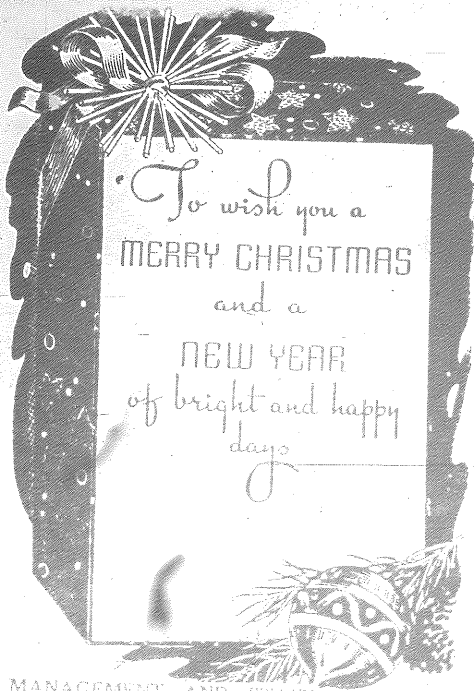 To wish you a
MERRY CHRISTMAS
and a
NEW YEAR
of bright and happy
days
MANAGEMENT AND